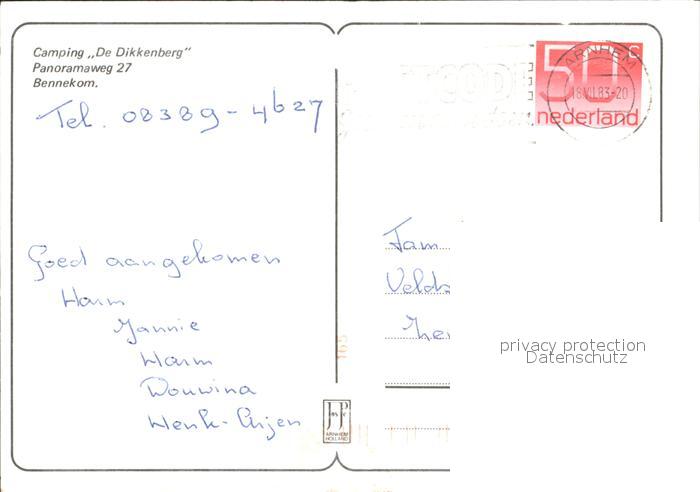 Camping „De Dikkenberg"
Panoramaweg 27
Bennekom.
Tel. 08389-4627
Goed aangekomen
Harm
Jannie
Harm
Douwina
Henk-Arjen
ARNHEM
18.VII.83-20
50 c
nederland
Fam
Velds
privacy protection
Datenschutz
JosPé
ARNHEM
HOLLAND